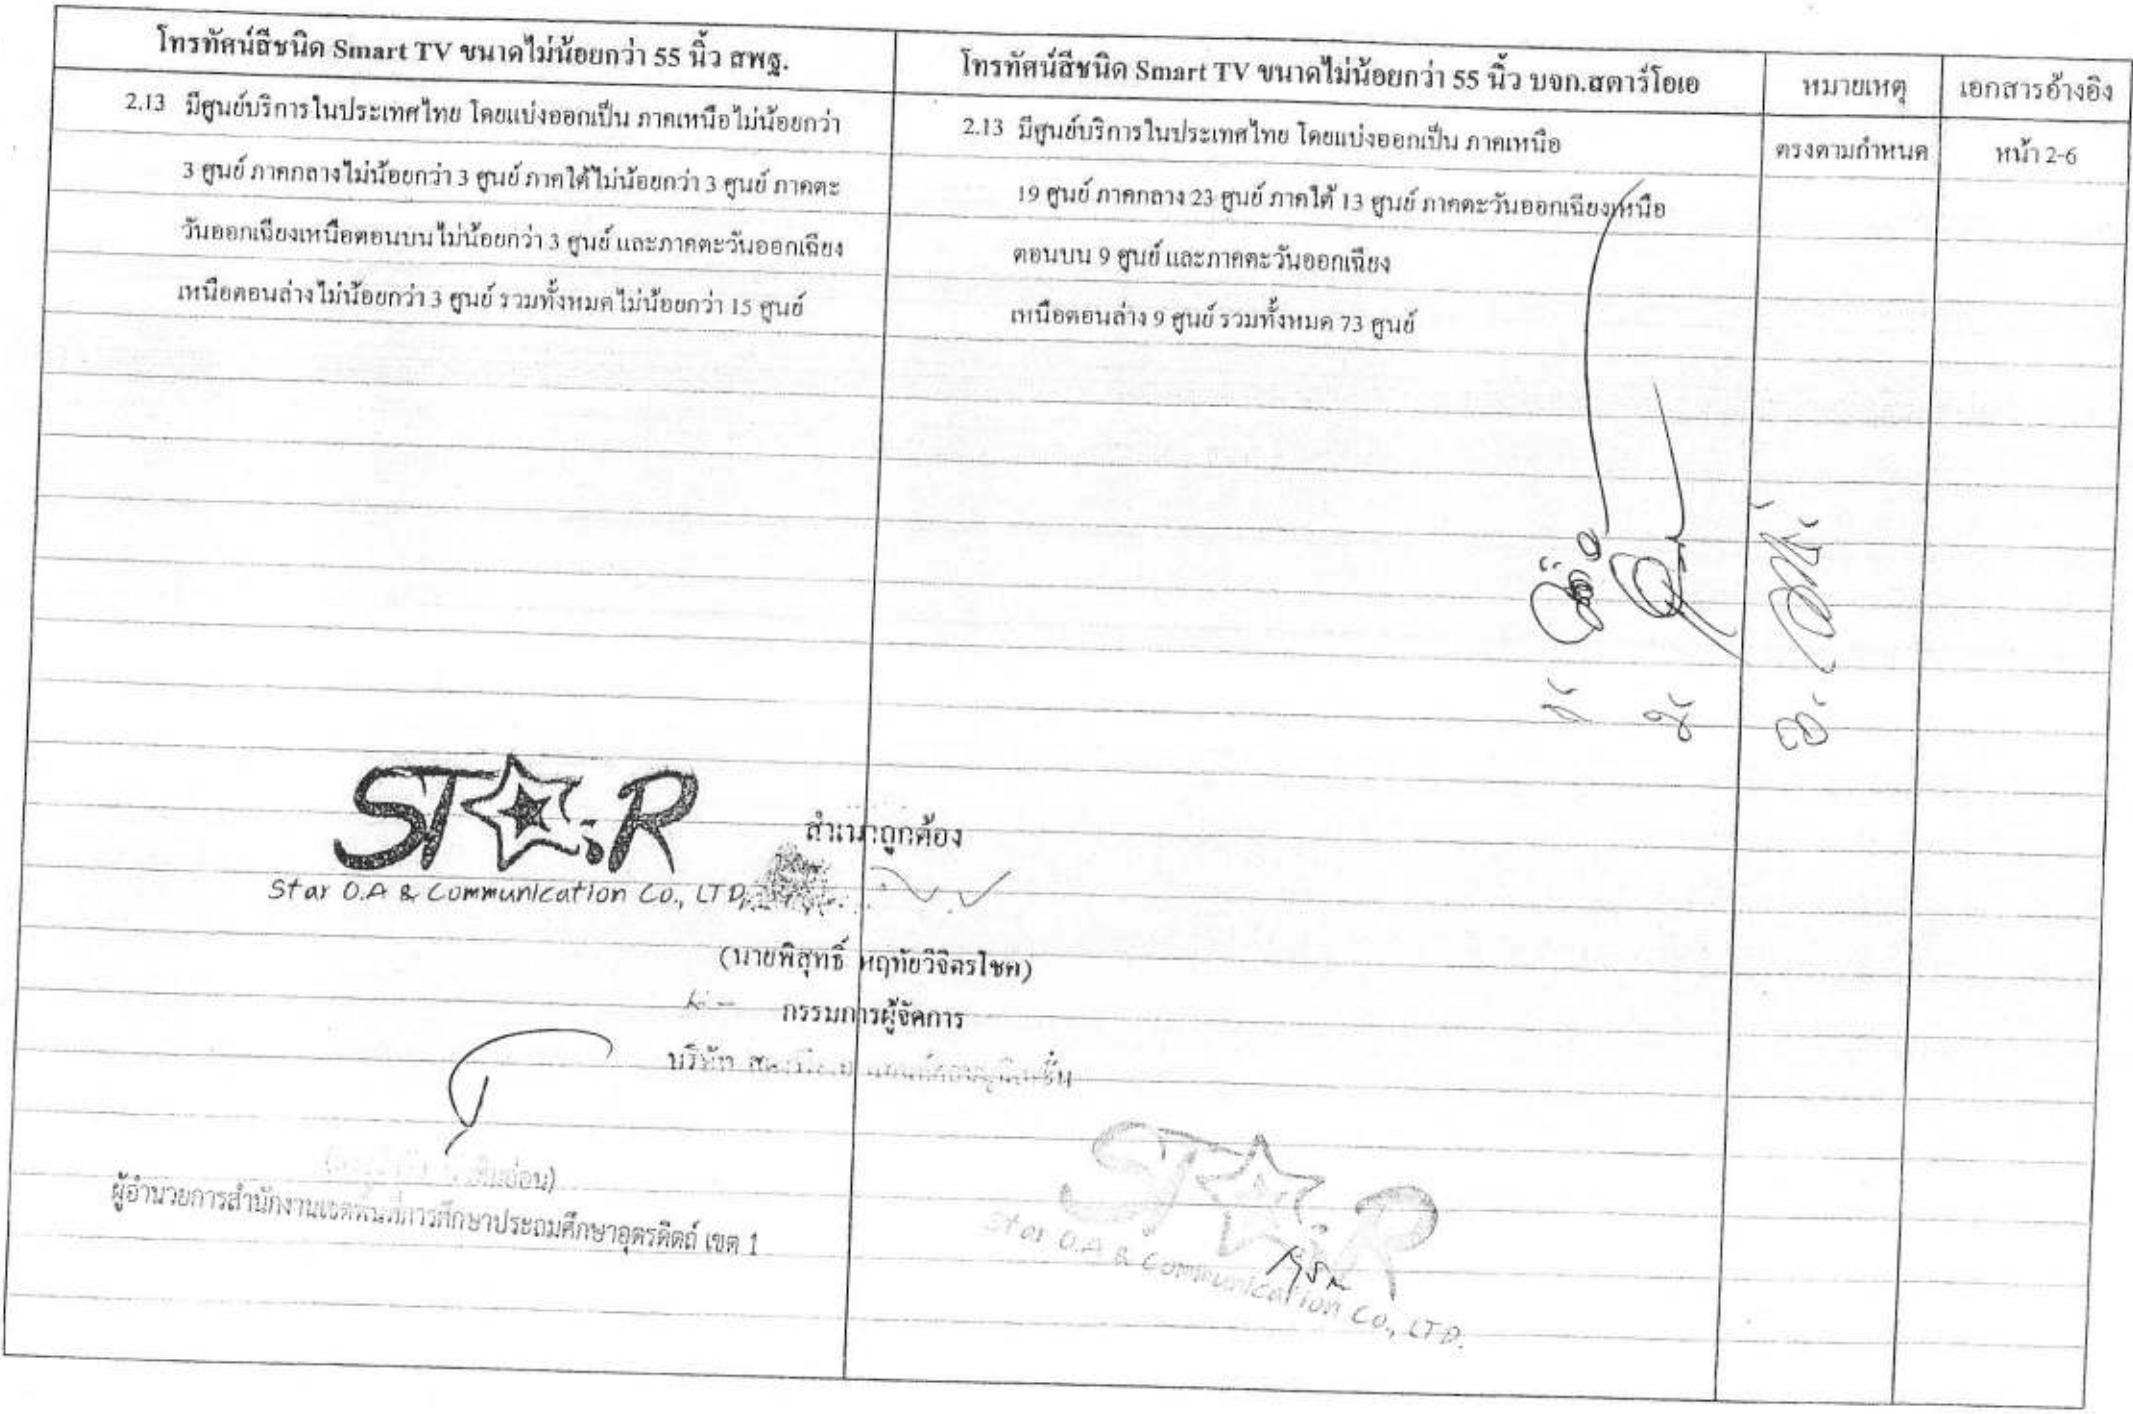 โทรทัศน์สีชนิด Smart TV ขนาดไม่น้อยกว่า 55 นิ้ว สพฐ.
โทรทัศน์สีชนิด Smart TV ขนาดไม่น้อยกว่า 55 นิ้ว บจก.สตาร์โอเอ
หมายเหตุ
เอกสารอ้างอิง
2.13 มีศูนย์บริการในประเทศไทย โดยแบ่งออกเป็น ภาคเหนือไม่น้อยกว่า
3 ศูนย์ ภาคกลางไม่น้อยกว่า 3 ศูนย์ ภาคใต้ไม่น้อยกว่า 3 ศูนย์ ภาคตะ
วันออกเฉียงเหนือตอนบน ไม่น้อยกว่า 3 ศูนย์ และภาคตะวันออกเฉียง
เหนือตอนล่าง ไม่น้อยกว่า 3 ศูนย์ รวมทั้งหมด ไม่น้อยกว่า 15 ศูนย์
2.13 มีศูนย์บริการในประเทศไทย โดยแบ่งออกเป็น ภาคเหนือ
19 ศูนย์ ภาคกลาง 23 ศูนย์ ภาคใต้ 13 ศูนย์ ภาคตะวันออกเฉียงเหนือ
ตอนบน 9 ศูนย์ และภาคตะวันออกเฉียง
เหนือตอนล่าง 9 ศูนย์ รวมทั้งหมด 73 ศูนย์
ตรงตามกำหนด
หน้า 2-6
STAR
Star O.A & Communication Co., LTD.
สำเนาถูกต้อง
(นายพิสุทธิ์ หฤทัยวิจิตรโชค)
กรรมการผู้จัดการ
บริษัท
ผู้อำนวยการสำนักงานเขตพื้นที่การศึกษาประถมศึกษาอุตรดิตถ์ เขต 1
STAR
Star O.A & Communication Co., LTD.